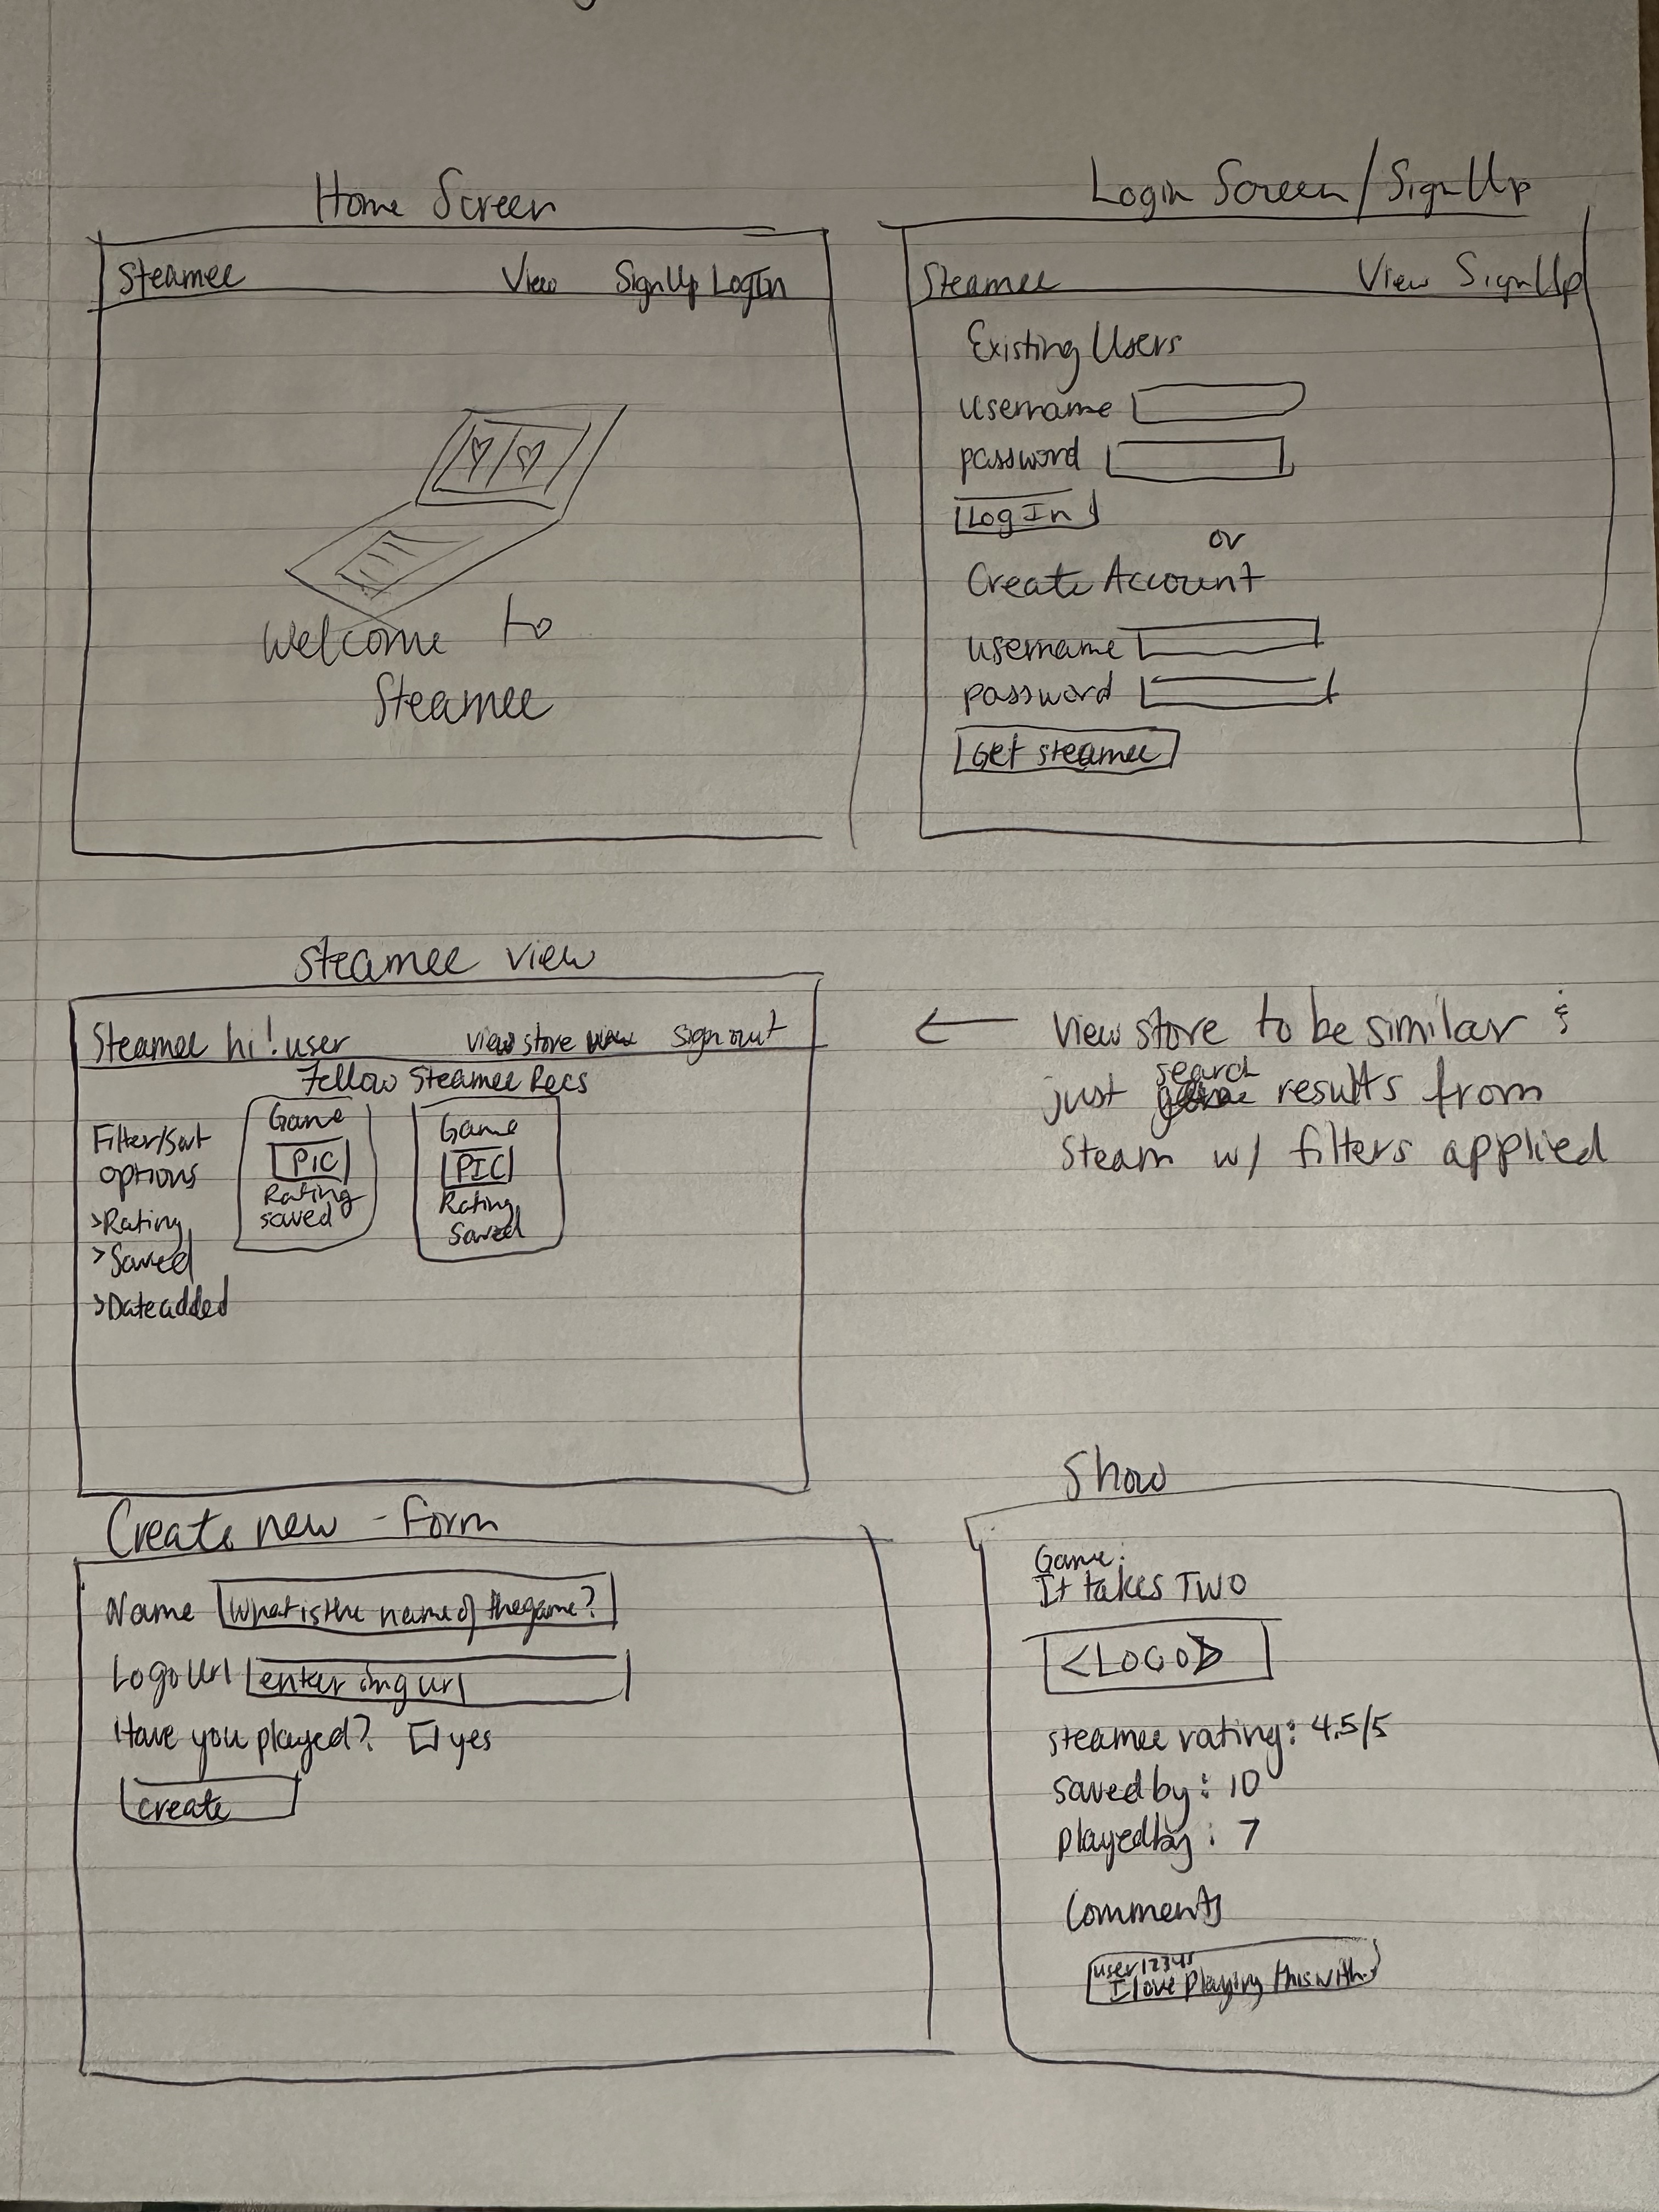 Home Screen
Steamee View SignUp LogIn
Welcome to
Steamee
Login Screen/SignUp
Steamee View SignUp
Existing Users
username
password
Log In
or
Create Account
username
password
Get steamee
Steamee view
Steamee hi! user view store sign out
Fellow Steamee Recs
Filter/Sort
options
>Rating
>Saved
>Date added
Game
PIC
Rating
saved
Game
PIC
Rating
Saved
← view store to be similar &
just search results from
Steam w/ filters applied
Create new - Form
Name What is the name of the game?
Logo Url enter img url
Have you played? yes
create
Show
Game:
It takes TWO
<LOGO>
steamee rating: 4.5/5
saved by: 10
played by: 7
Comments
user12345
I love playing this with